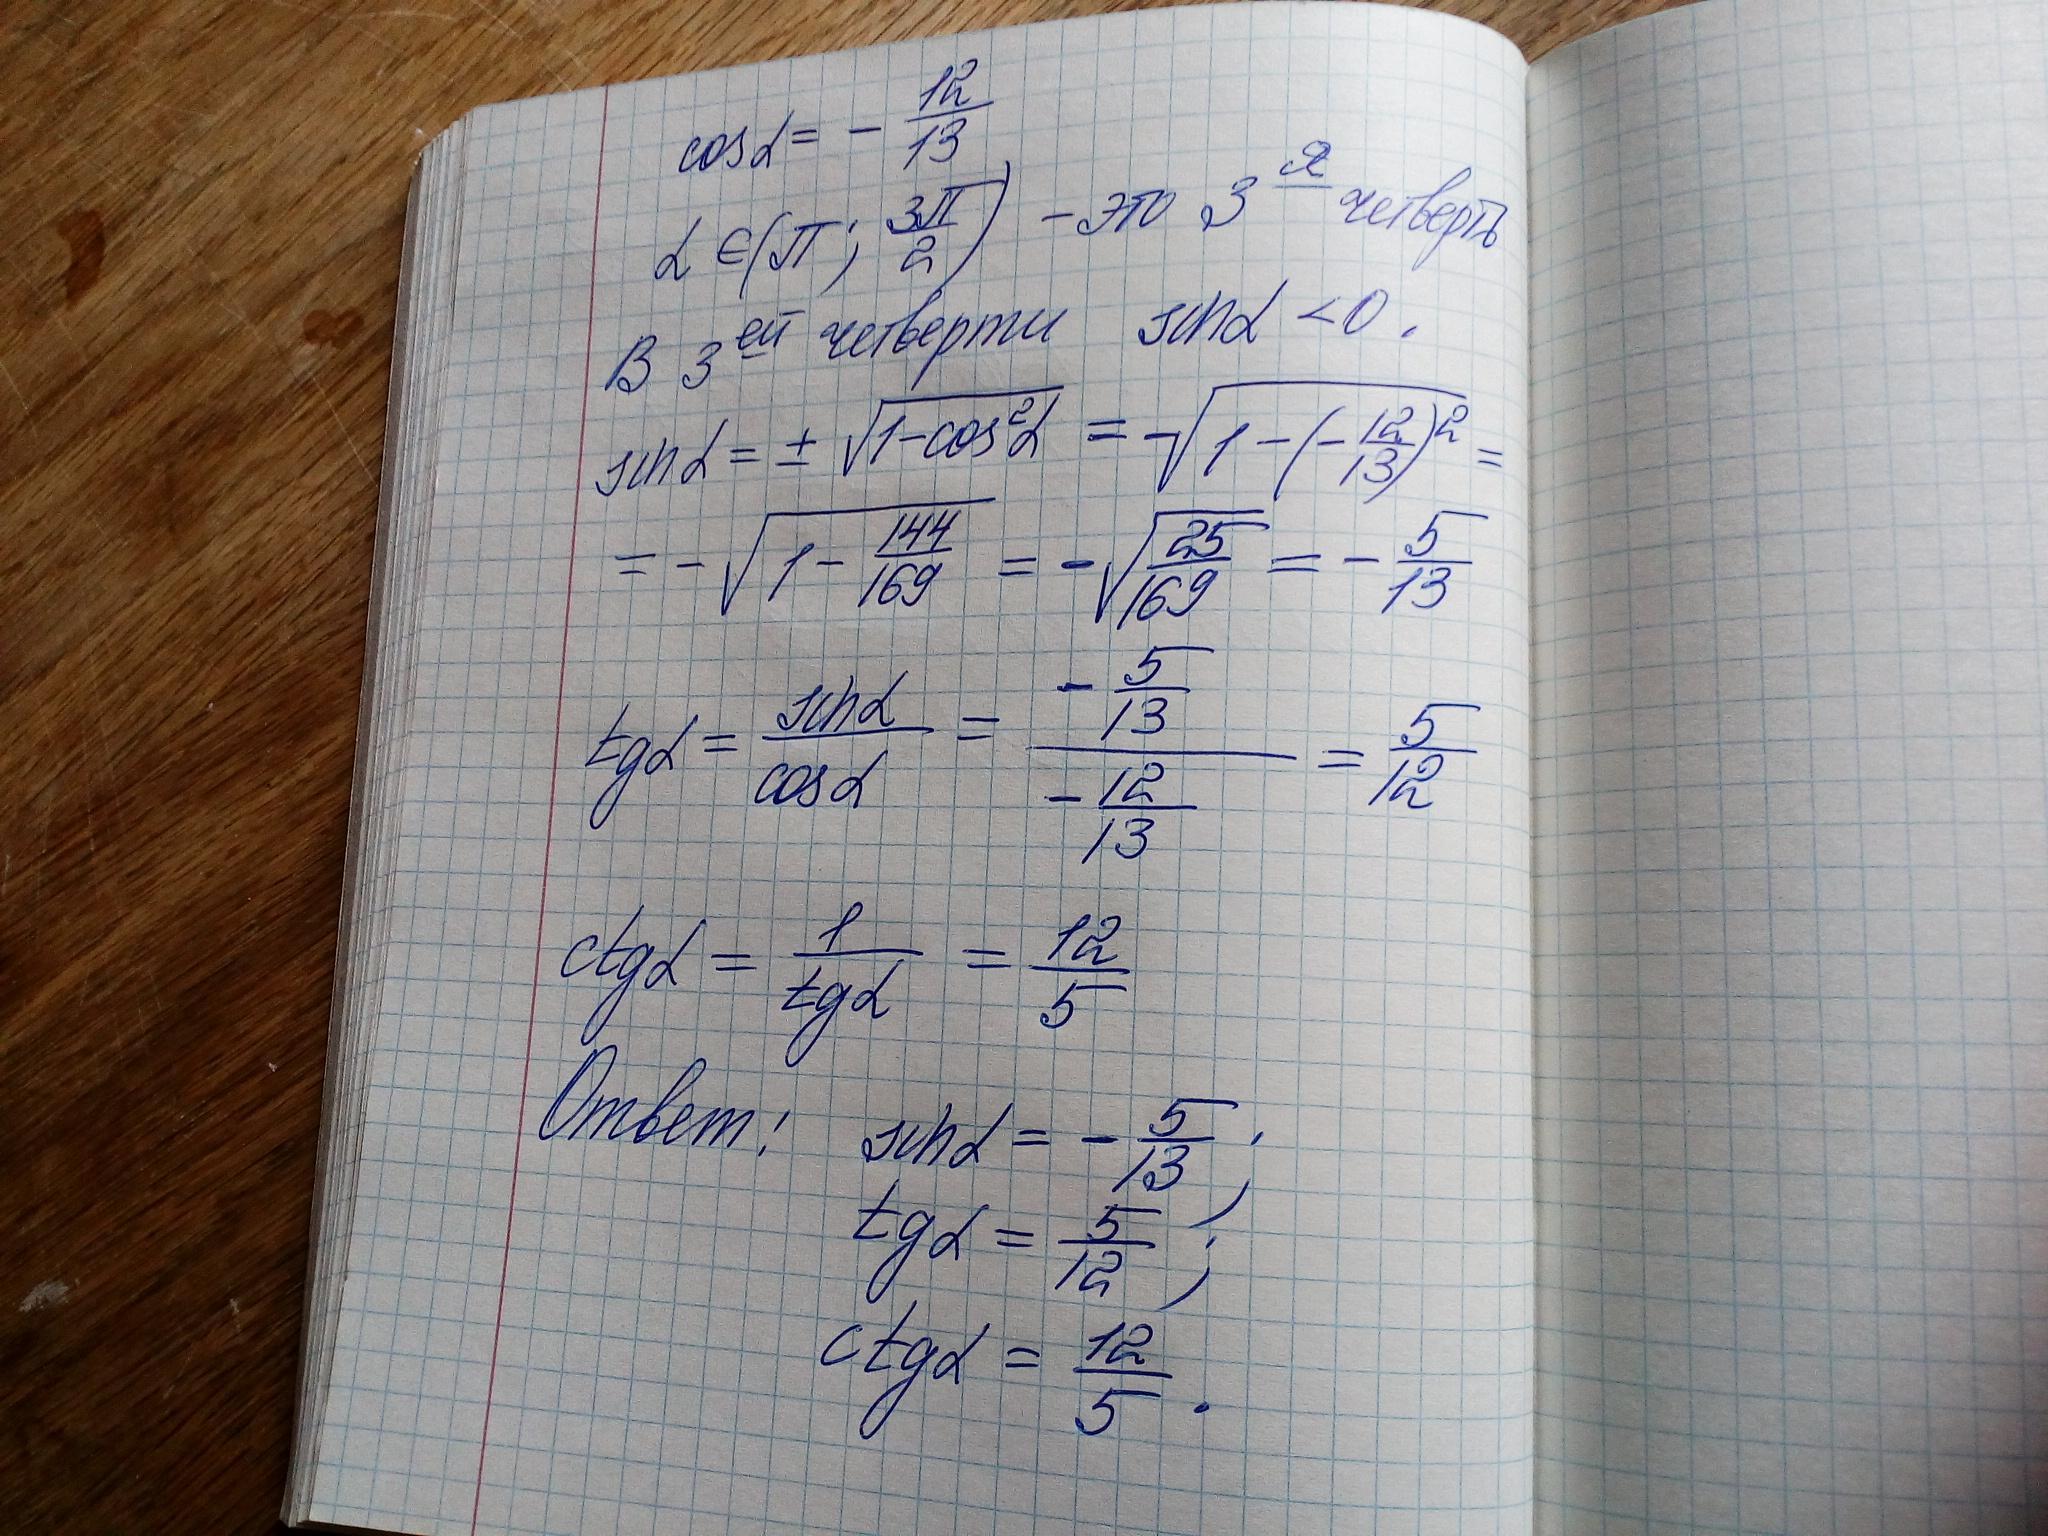 cosα = - 12/13
α ∈ (π; 3π/2) - это 3я четверть
В 3ей четверти sinα < 0.
sinα = ± √(1-cos²α) = -√(1-(-12/13)²) =
= -√(1 - 144/169) = -√(25/169) = - 5/13
tgα = sinα/cosα = (- 5/13)/(- 12/13) = 5/12
ctgα = 1/tgα = 12/5
Ответ: sinα = - 5/13;
tgα = 5/12;
ctgα = 12/5.